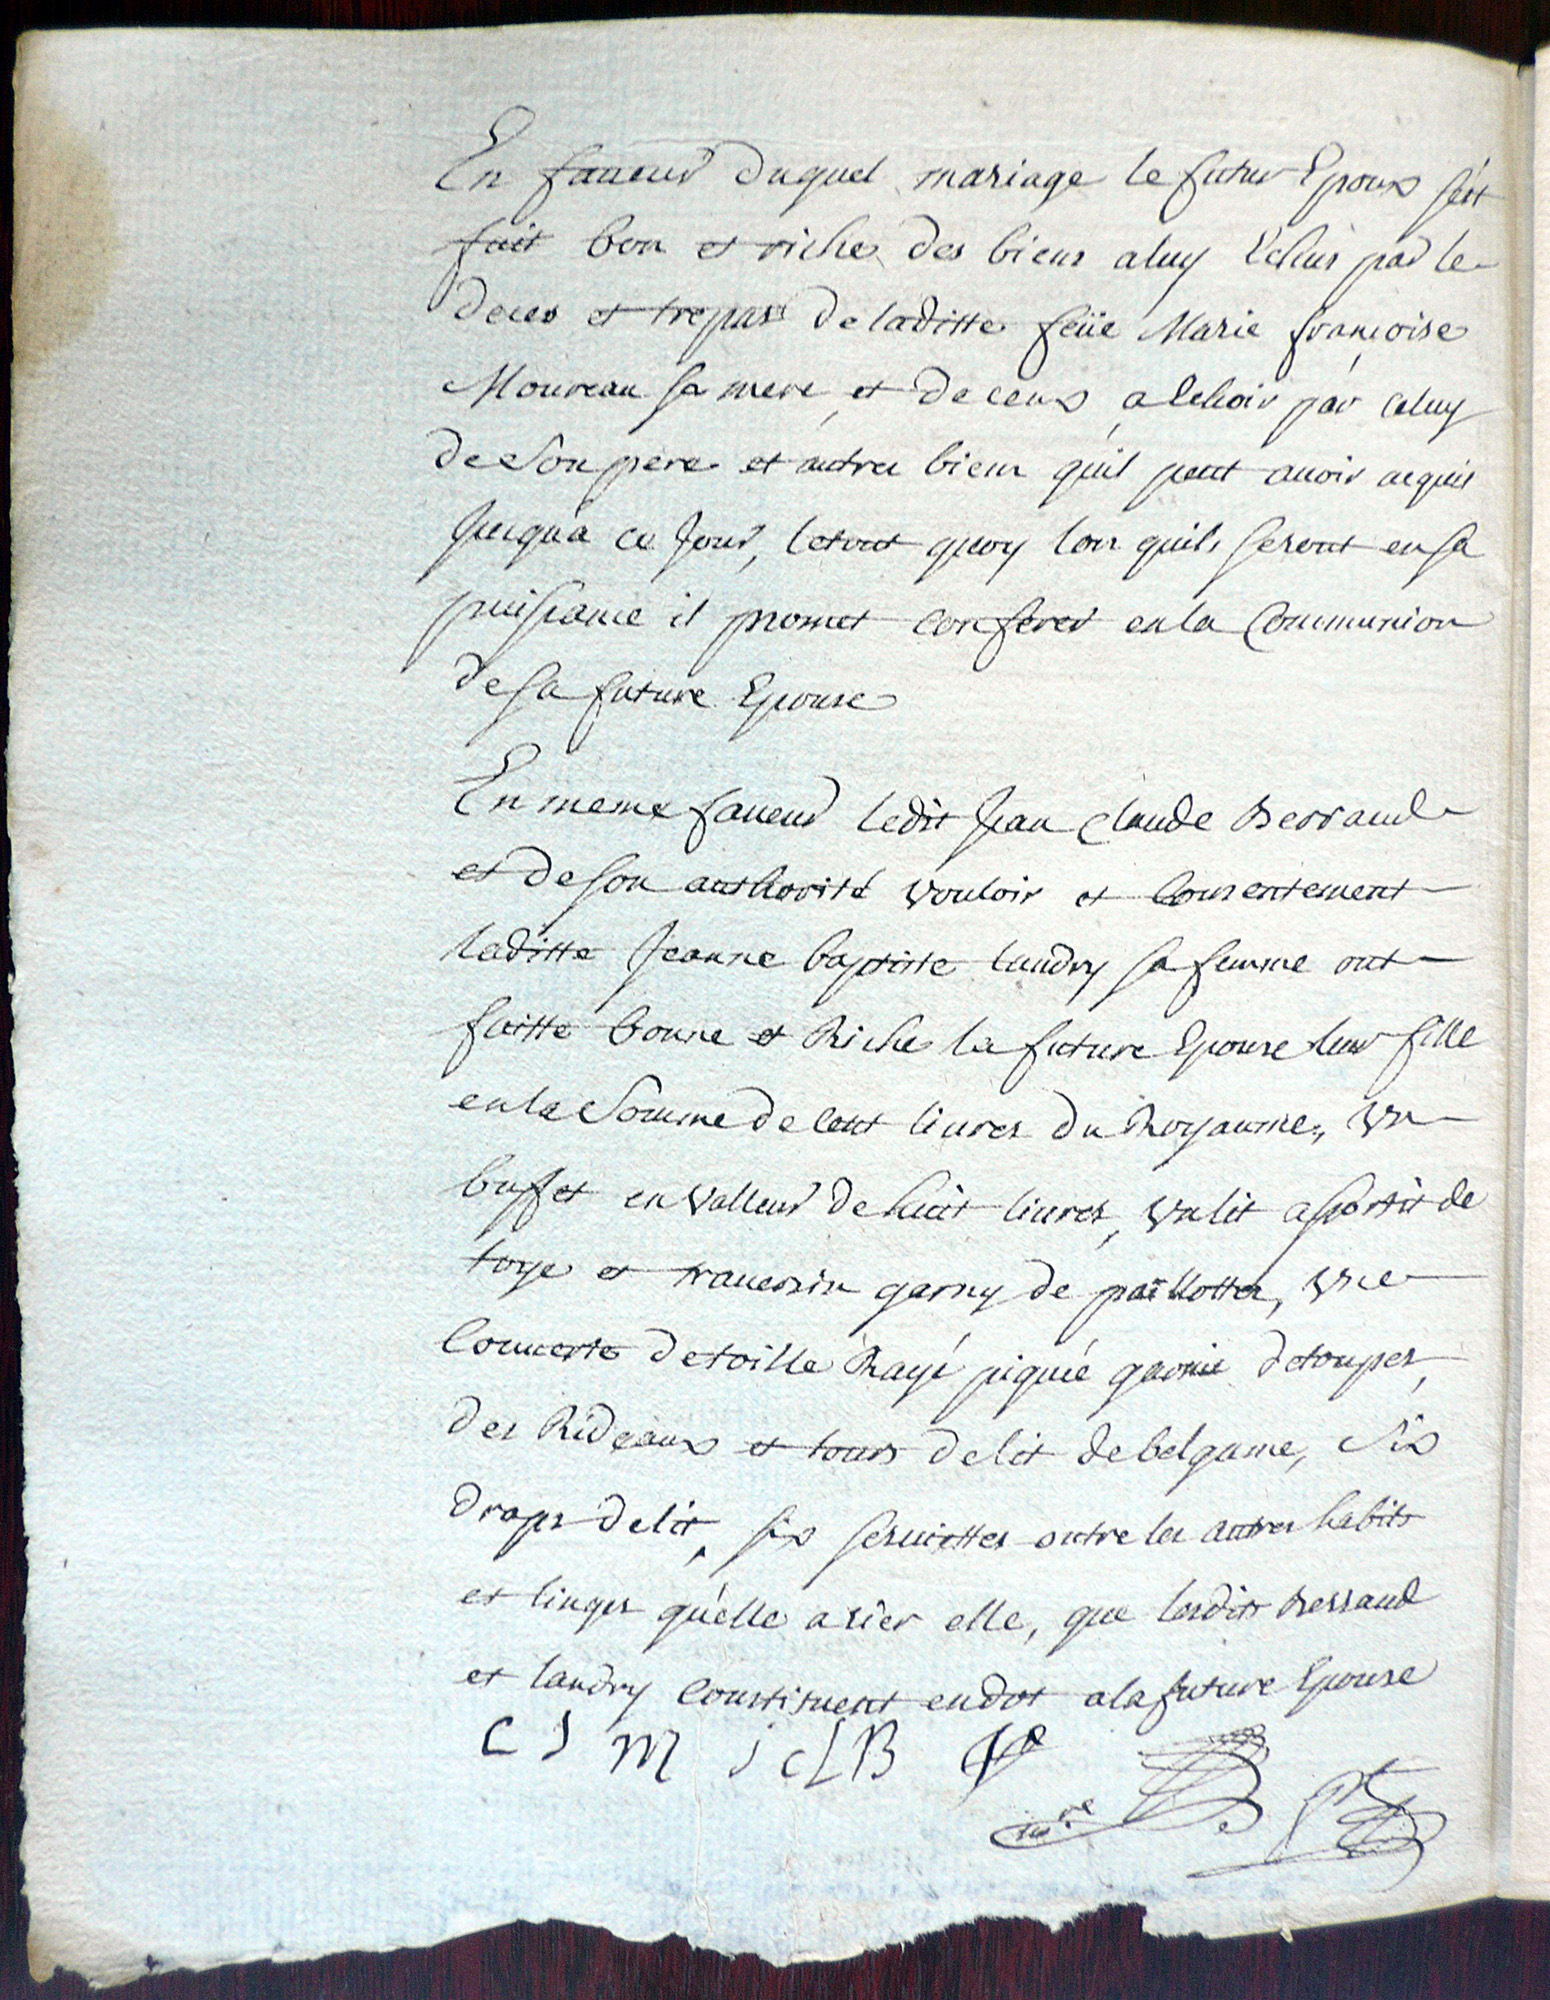 En faueur duquel mariage le futur Epoux s'est
fait bon et riche des biens a luy Echus par le
deces et trepas de laditte feüe Marie françoise
Moureau sa mere, et de ceux a Echoir par celuy
de Son pere et autres biens qu'il peut auoir acquis
jusqu'a ce jour, le tout quoy lors quils seront en sa
puissance il promet conferer en la Communion
de sa future Epouse
En meme faueur ledit jean claude Berraud
et de son authorité vouloir et Consentement
laditte jeanne baptiste landry sa femme ont
faitte bonne et Riche la future Epouse leur fille
en la Somme de Cent liures du Royaume, vn
buffet en valleur de huit liures, vn lit assortit de
toye et trauersin garny de paillottes, vne
Couuerte de toille Rayé piquée garnie d'etoupes,
des Rideaux et tours de lit de belgame, Six
draps de lit, six seruiettes outre les autres habits
et linges qu'elle a rier elle, que lesdits Berraud
et landry Constituent en dot a la future Epouse
C J M j c L B